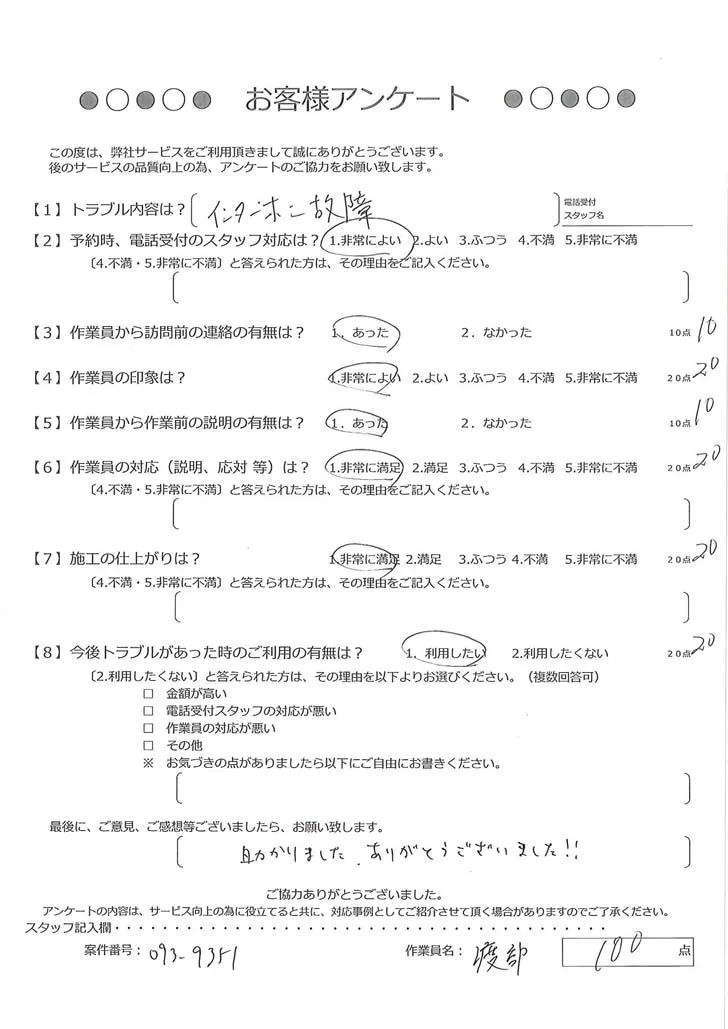 ●○●○● お客様アンケート ●○●○●
この度は、弊社サービスをご利用頂きまして誠にありがとうございます。
後のサービスの品質向上の為、アンケートのご協力をお願い致します。
【1】トラブル内容は？〔 インターホン故障 〕 電話受付
スタッフ名
【2】予約時、電話受付のスタッフ対応は？ 1.非常によい 2.よい 3.ふつう 4.不満 5.非常に不満
〔4.不満・5.非常に不満〕と答えられた方は、その理由をご記入ください。
〔 〕
【3】作業員から訪問前の連絡の有無は？ 1．あった 2．なかった 10点 10
【4】作業員の印象は？ 1.非常によい 2.よい 3.ふつう 4.不満 5.非常に不満 20点 20
【5】作業員から作業前の説明の有無は？ 1．あった 2．なかった 10点 10
【6】作業員の対応（説明、応対 等）は？ 1.非常に満足 2.満足 3.ふつう 4.不満 5.非常に不満 20点 20
〔4.不満・5.非常に不満〕と答えられた方は、その理由をご記入ください。
〔 〕
【7】施工の仕上がりは？ 1.非常に満足 2.満足 3.ふつう 4.不満 5.非常に不満 20点 20
〔4.不満・5.非常に不満〕と答えられた方は、その理由をご記入ください。
〔 〕
【8】今後トラブルがあった時のご利用の有無は？ 1．利用したい 2.利用したくない 20点 20
〔2.利用したくない〕と答えられた方は、その理由を以下よりお選びください。（複数回答可）
□ 金額が高い
□ 電話受付スタッフの対応が悪い
□ 作業員の対応が悪い
□ その他
※ お気づきの点がありましたら以下にご自由にお書きください。
〔 〕
最後に、ご意見、ご感想等ございましたら、お願い致します。
〔 助かりました．ありがとうございました!! 〕
ご協力ありがとうございました。
アンケートの内容は、サービス向上の為に役立てると共に、対応事例としてご紹介させて頂く場合がありますのでご了承ください。
スタッフ記入欄・・・・・・・・・・・・・・・・・・・・・・・・・・・・・・・・・・・・・・・・・・・
案件番号： 093-9351 作業員名： 渡部 100 点